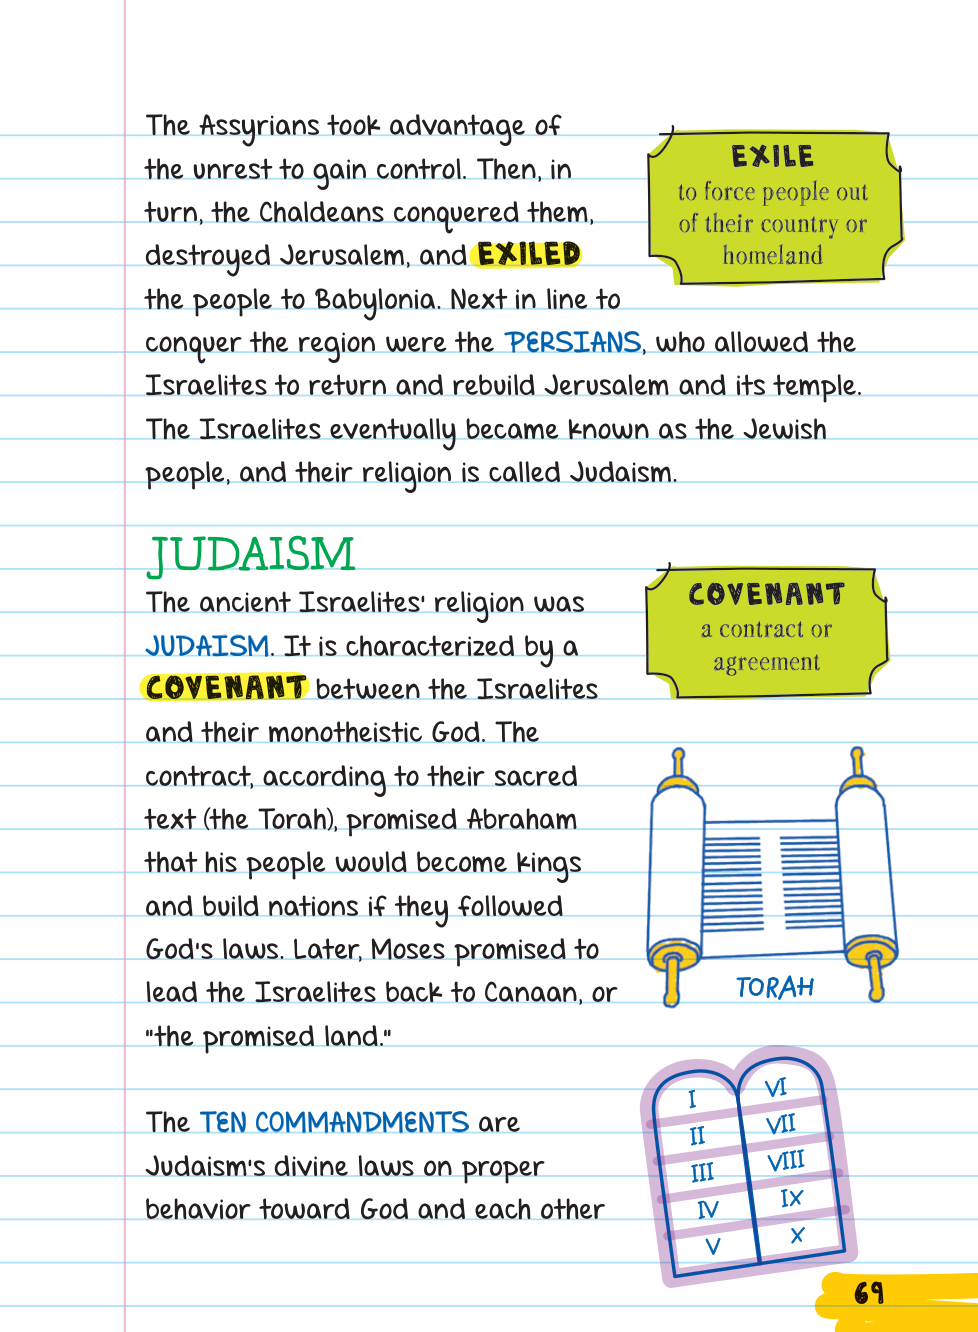 The Assyrians took advantage of
the unrest to gain control. Then, in
turn, the Chaldeans conquered them,
destroyed Jerusalem, and EXILED
the people to Babylonia. Next in line to
conquer the region were the PERSIANS, who allowed the
Israelites to return and rebuild Jerusalem and its temple.
The Israelites eventually became known as the Jewish
people, and their religion is called Judaism.
EXILE
to force people out
of their country or
homeland
JUDAISM
The ancient Israelites' religion was
JUDAISM. It is characterized by a
COVENANT between the Israelites
and their monotheistic God. The
contract, according to their sacred
text (the Torah), promised Abraham
that his people would become kings
and build nations if they followed
God's laws. Later, Moses promised to
lead the Israelites back to Canaan, or
"the promised land."
COVENANT
a contract or
agreement
TORAH
The TEN COMMANDMENTS are
Judaism's divine laws on proper
behavior toward God and each other
I VI
II VII
III VIII
IV IX
V X
69